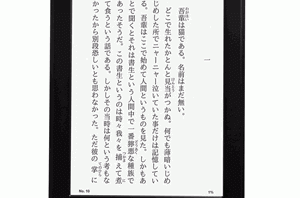 一
吾輩は猫である。名前はまだ無い。
どこで生れたかとんと見当がつかぬ。何でも薄暗いじめ
じめした所でニャーニャー泣いていた事だけは記憶してい
る。吾輩はここで始めて人間というものを見た。しかもあ
とで聞くとそれは書生という人間中で一番獰悪な種族で
あったそうだ。この書生というのは時々我々を捕えて煮
て食うという話である。しかしその当時は何という考もな
かったから別段恐しいとも思わなかった。ただ彼の掌に
No. 10
1%